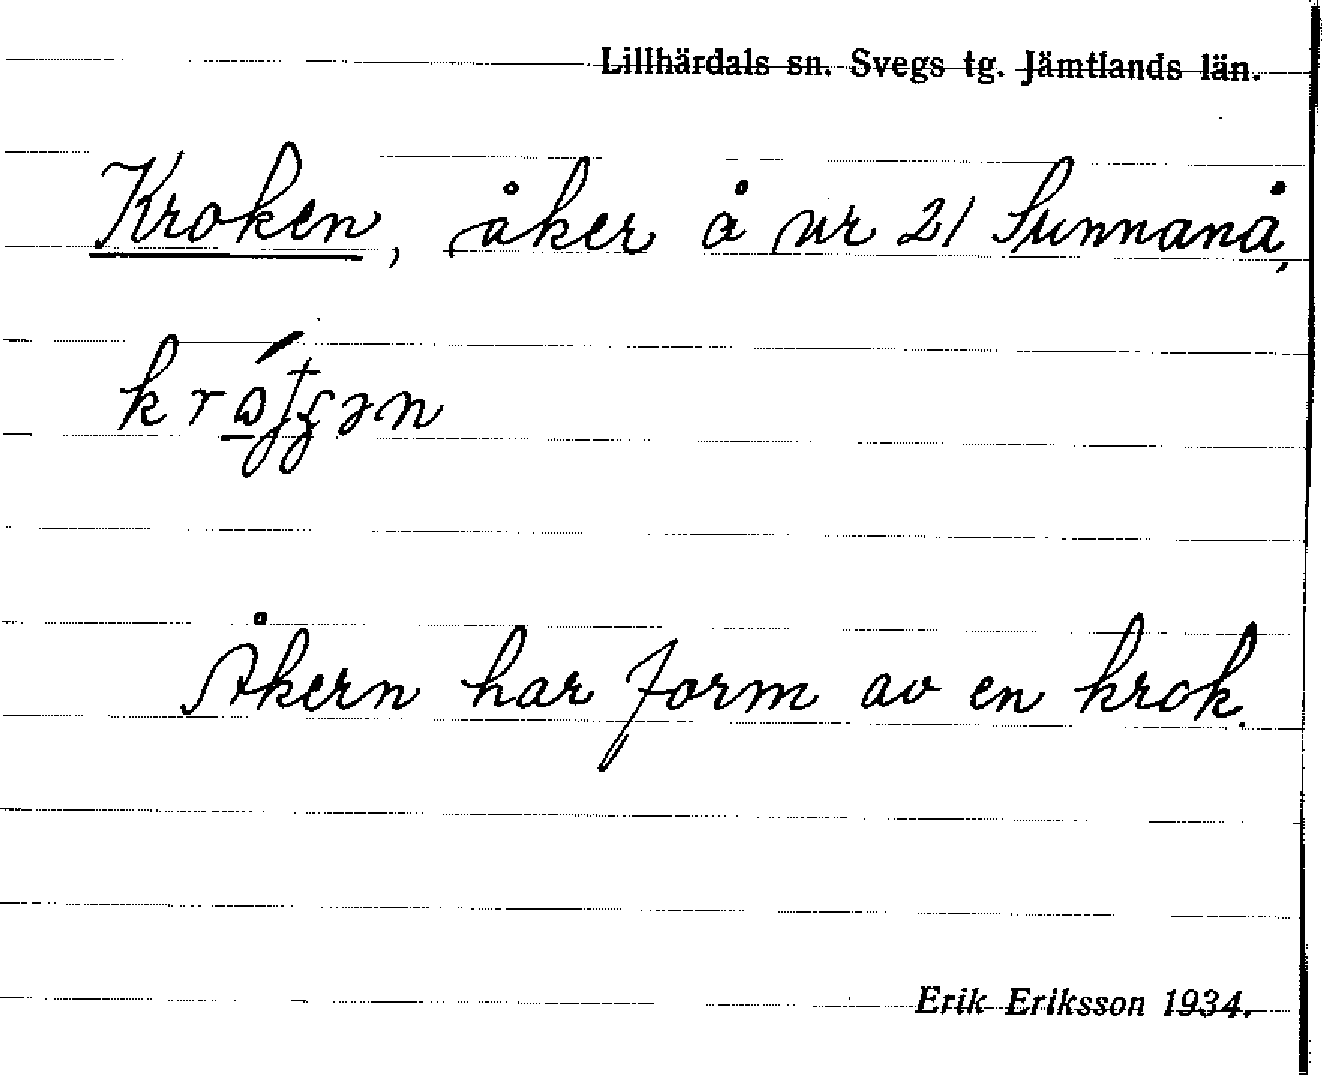 Lillhärdals sn. Svegs tg. Jämtlands län.
Kroken, åker å nr 21 Sunnanå,
Åkern har form av en krok.
Erik Eriksson 1934.